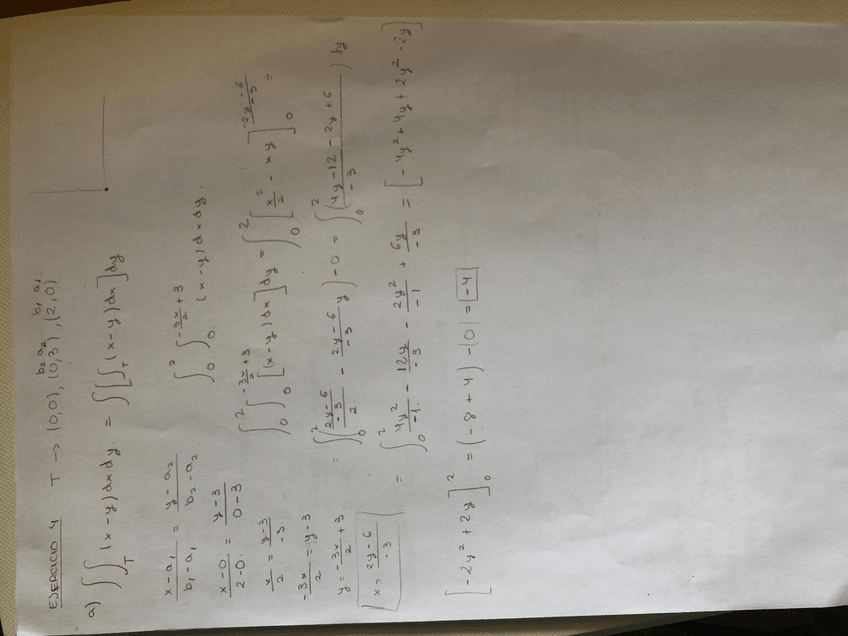 EJERCICIO 4 T -> (0,0), (0,3), (2,0)
b₂ a₂ b₁ a₁
a) ∬_T (x-y) dx dy = ∫[∫_T (x-y) dx] dy
(x-a₁)/(b₁-a₁) = (y-a₂)/(b₂-a₂)
∫₀² ∫₀^(-3x/2 + 3) (x-y) dx dy.
(x-0)/(2-0) = (y-3)/(0-3)
x/2 = (y-3)/-3
∫₀² ∫₀^(-3x/2 + 3) [(x-y) dx] dy = ∫₀² [x²/2 - xy]₀^((-2y-6)/-3) =
-3x/2 = y-3
y = -3x/2 + 3
= ∫₀² ( ((2y-6)/-3)/2 - (2y-6)/-3 y ) - 0 = ∫₀² ( (4y-12-2y+6)/-3 ) dy
x = (2y-6)/-3
= ∫₀² 4y²/-1 - 12y/-3 - 2y²/-1 + 6y/-3 = [-4y² + 4y + 2y² - 2y]
[-2y² + 2y]₀² = (-8+4) - (0) = -4